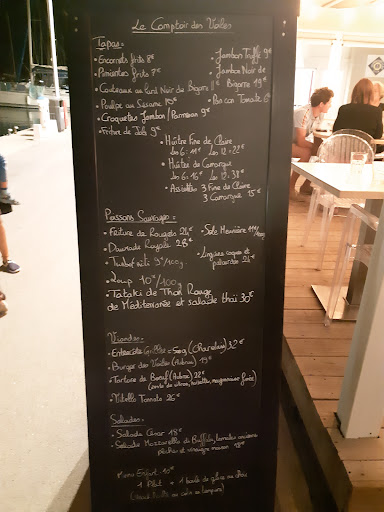 Le Comptoir des Voiles
Tapas:
• Encornets frits 8€
• Pimientos frits 7€
• Couteaux au Kunt Noir de Bigorre 11€
• Poulpe au Sésame 15€
• Croquettes Jambon/Parmesan 9€
• Friture de Joels 9€
• Jambon Truffé 9€
• Jambon Noir de
Bigorre 19€
• Pan con Tomate 6€
• Huître Fine de Claire
les 6: 11€ les 12: 22€
• Huîtres de Camargue
les 6: 16€ les 12: 38€
• Assiettes 3 Fine de Claire
3 Camargue 15€
Poissons Sauvages:
• Friture de Rougets 24€
• Daurade Royale 28€
• Turbot rôti 9€/100g
• Loup 10€/100g
• Sole Meunière 11€/100g
• Linguine coques et
poutargue 21€
• Tataki de Thon Rouge
de Méditerranée et salade thaï 30€
Viandes:
• Entrecôte Grillée ≈ 500g (Charolais) 32€
• Burger des Voiles (Aubrac) 19€
• Tartare de Bœuf (Aubrac) 22€
• Vitello Tonnato 26€
Salades:
• Salade César 18€
• Salade Mozzarella di Buffala, tomates anciennes
pêches et vinaigre maison 18€
Menu Enfant 10€
1 Plat + 1 boule de glace au choix